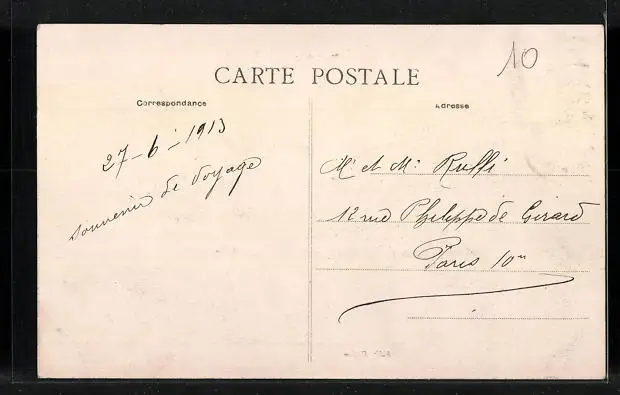 10
CARTE POSTALE
Correspondance
Adresse
27-6-1913
Souvenir de Voyage
Mr et Me Ruffi
12 rue Philippe de Girard
Paris 10me